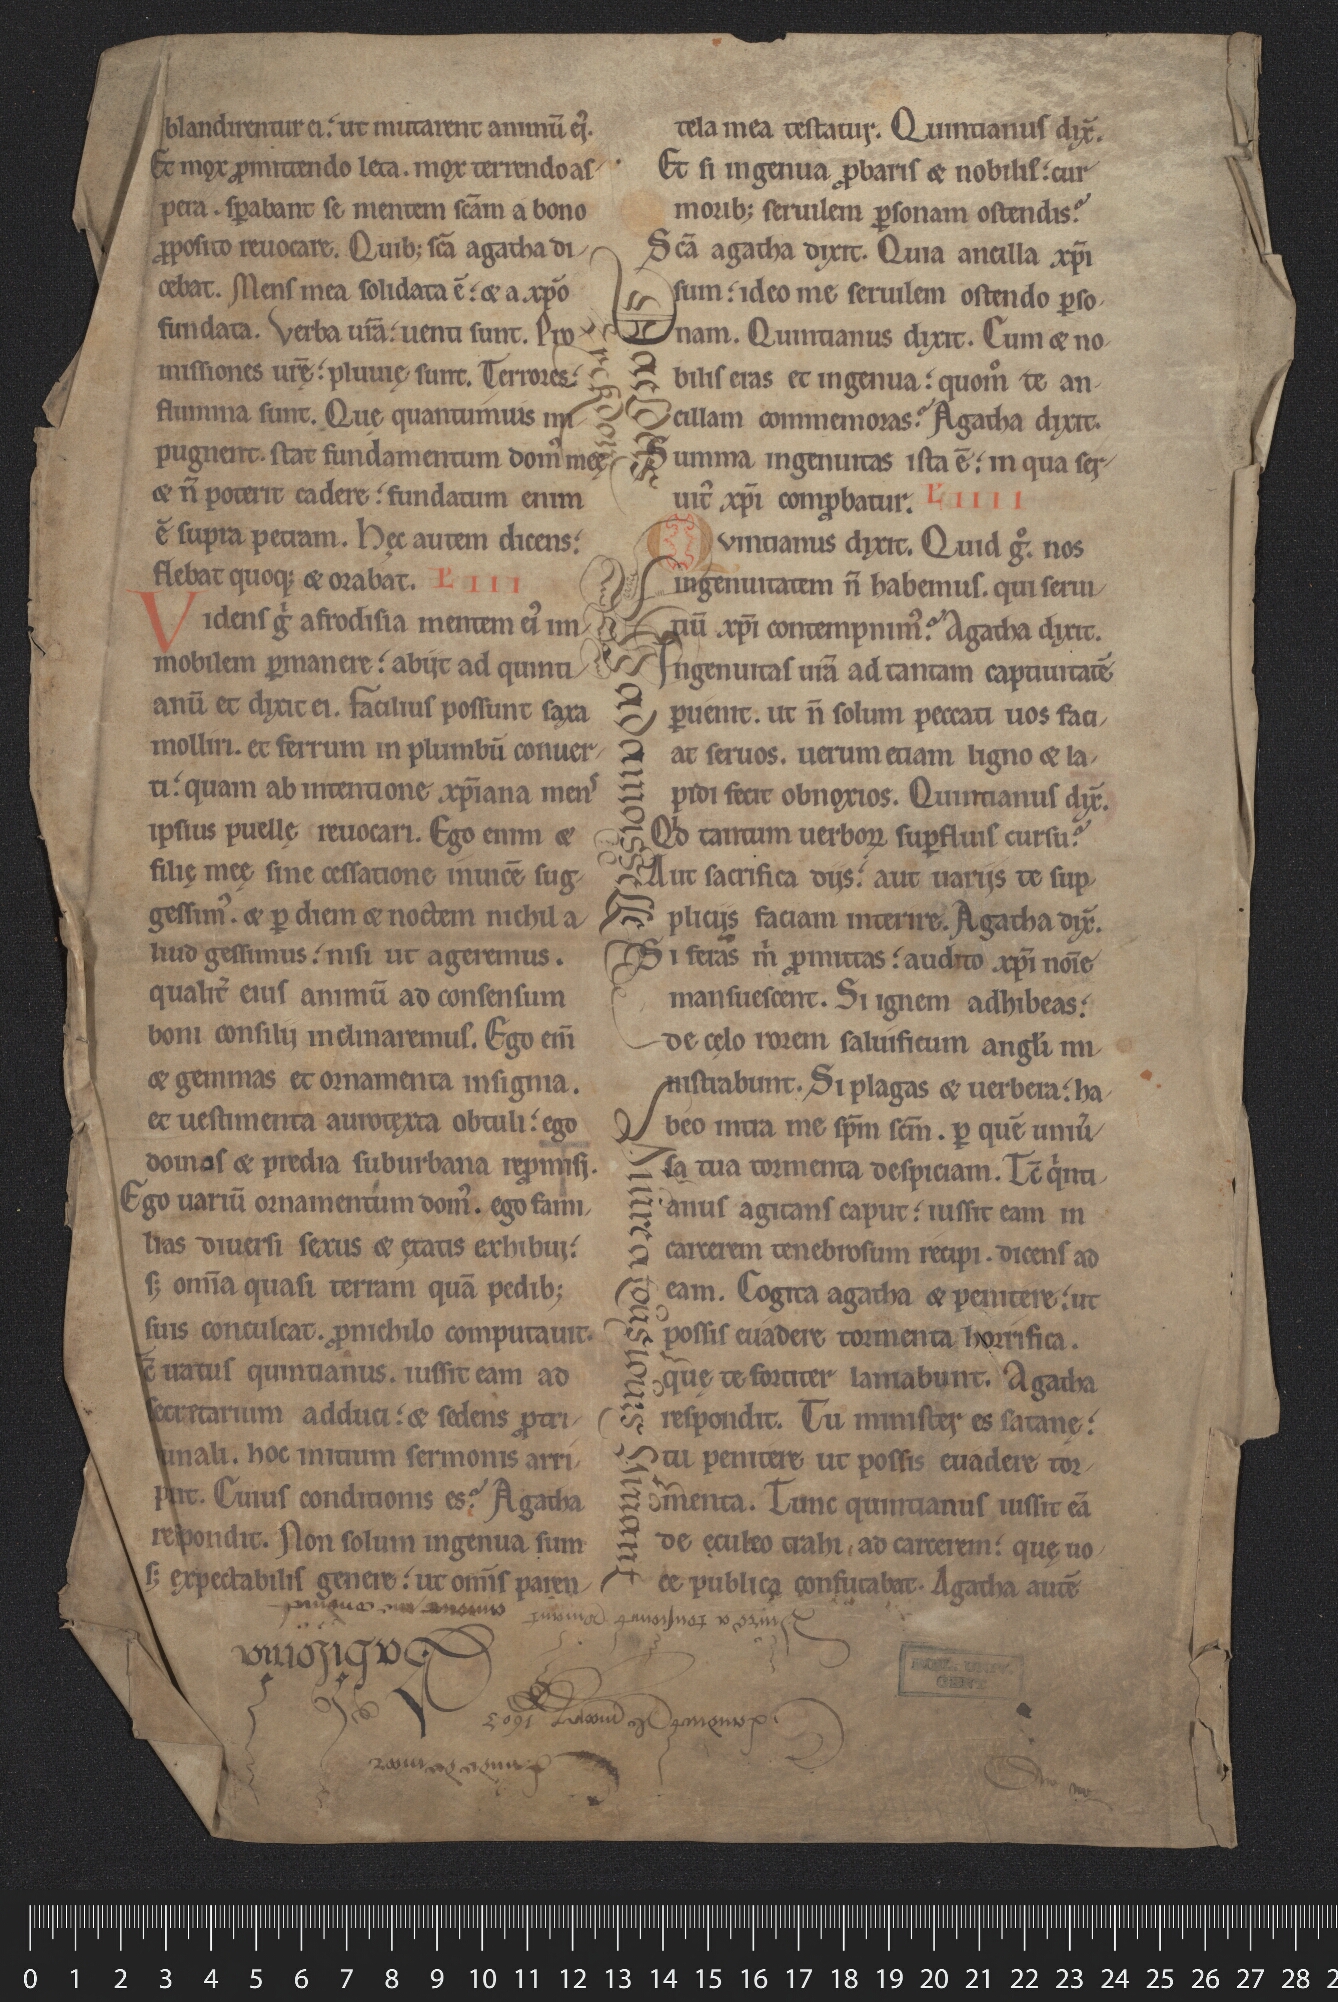 blandirentur ei: ut mutarent animū eꝰ.
Et mox ꝓmittendo leta. mox terrendo as-
pera. sꝑabant se mentem scām a bono
ꝓposito reuocare. Quib; scā agatha di-
cebat. Mens mea solidata ē: & a xp̄o
fundata. Verba ur̄a: uenti sunt. Pro-
missiones ur̄ę: pluuię sunt. Terrores:
flumina sunt. Quę quantumuis im-
pugnent. stat fundamentum domꝰ meę
& n̄ poterit cadere: fundatum enim
ē supra petram. Hęc autem dicens:
flebat quoq; & orabat. L̄ III
Videns g̊ afrodisia mentem eiꝰ im-
mobilem ꝑmanere: abijt ad quinti-
anū et dixit ei. Facilius possunt saxa
molliri. et ferrum in plumbū conuer-
ti: quam ab intentione xp̄iana mens
ipsius puellę reuocari. Ego enim &
filię meę sine cessatione inuicē sug-
gessimꝰ. & ꝑ diem & noctem nichil a-
liud gessimus: nisi ut ageremus.
qualit̄ eius animū ad consensum
boni consilij inclinaremus. Ego em̄
& gemmas et ornamenta insignia.
et uestimenta aurotexta obtuli: ego
domos & predia suburbana repmisi.
Ego uariū ornamentum domꝰ. ego fami-
lias diuersi sexus & ętatis exhibui:
s; om̄ia quasi terram quā pedib;
suis conculcat. ꝓnichilo computauit.
Iratus quintianus. iussit eam ad
secretarium adduci: & sedens ꝓ tri-
bunali. hoc initium sermonis arri-
puit. Cuius conditionis es? Agatha
respondit. Non solum ingenua sum
s; expectabilis genere: ut om̄s paren-
tela mea testatur. Quintianus dix̄.
Et si ingenua ꝓbaris & nobilis: cur
morib; seruilem ꝑsonam ostendis?
Scā agatha dixit. Quia ancilla xp̄i
sum: ideo me seruilem ostendo ꝑso-
nam. Quintianus dixit. Cum & no-
bilis eras et ingenua: quom̊ te an-
cillam commemoras? Agatha dixit.
Summa ingenuitas ista ē: in qua ser-
uit̄ xp̄i comꝓbatur. L̄ IIII
Quintianus dixit. Quid g̊. nos
ingenuitatem n̄ habemus. qui serui-
tiū xp̄i contempnimꝰ? Agatha dixit.
Ingenuitas ur̄a ad tantam captiuitatē
ꝑuenit. ut n̄ solum peccati uos faci-
at seruos. uerum etiam ligno & la-
pidi fecit obnoxios. Quintianus dix̄.
Qd̄ tantum uerboꝝ suꝑfluis cursu?
Aut sacrifica dijs: aut uarijs te sup-
plicijs faciam interire. Agatha dix̄.
Si feras m̊ ꝓmittas: audito xp̄i noīe
mansuescent. Si ignem adhibeas:
de cęlo rorem saluificum angli mi-
nistrabunt. Si plagas & uerbera: ha-
beo intra me sp̄m scm̄. ꝑ quē uniū-
sa tua tormenta despiciam. Tc̄ q̊nti-
anus agitans caput: iussit eam in
carcerem tenebrosum recipi. dicens ad
eam. Cogita agatha & penitere: ut
possis euadere tormenta horrifica.
quę te fortiter laniabunt. Agatha
respondit. Tu minister es satanę:
tu penitere ut possis euadere tor-
menta. Tunc quintianus iussit eā
de eculeo trahi. ad carcerem: que uo-
ce publica confutabat. Agatha autē
Babilonia
1603
BIBL. UNIV.
GENT
0 1 2 3 4 5 6 7 8 9 10 11 12 13 14 15 16 17 18 19 20 21 22 23 24 25 26 27 28